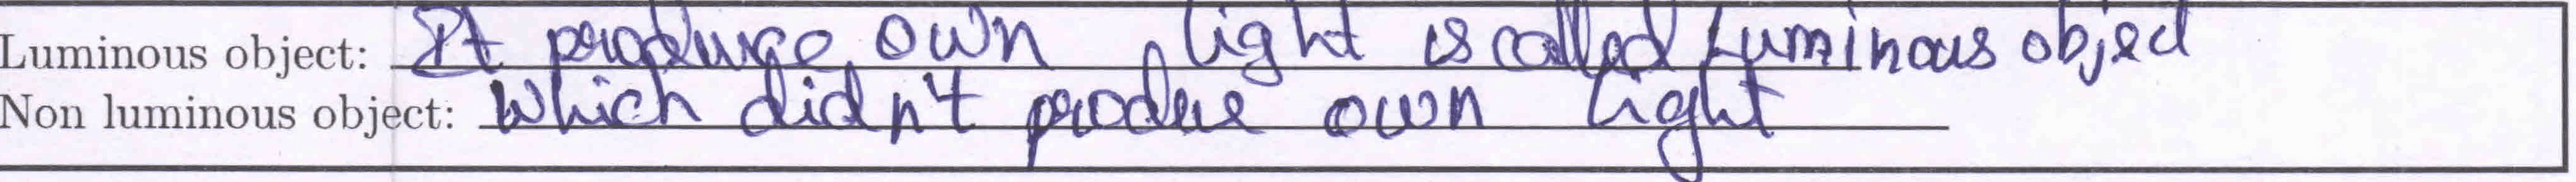 Luminous object: It produce own light is called Luminous object
Non luminous object: Which didn't produe own light